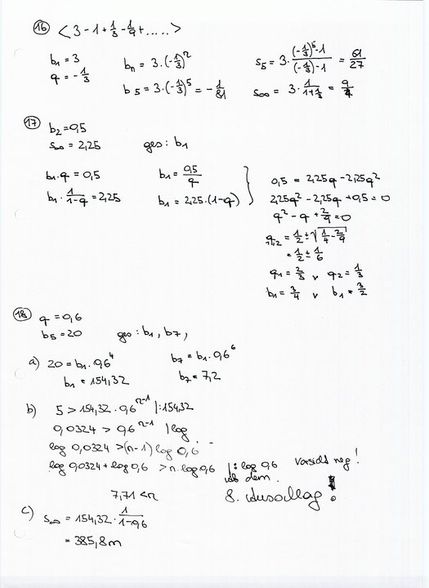 16 < 3 - 1 + 1/3 - 1/9 + ..... >
b₁ = 3
q = -1/3
bₙ = 3·(-1/3)ⁿ
b5 = 3·(-1/3)⁵ = -1/81
s₅ = 3·((-1/3)⁵-1)/((-1/3)-1) = 61/27
s∞ = 3·1/(1+1/3) = 9/4
17 b₂ = 0,5
s∞ = 2,25 ges: b₁
b₁·q = 0,5 b₁ = 0,5/q
b₁·1/(1-q) = 2,25 b₁ = 2,25·(1-q)
0,5 = 2,25q - 2,25q²
2,25q² - 2,25q + 0,5 = 0
q² - q + 2/9 = 0
q₁,₂ = 1/2 ± √(1/4 - 2/9)
= 1/2 ± 1/6
q₁ = 2/3 v q₂ = 1/3
b₁ = 3/4 v b₁ = 3/2
18 q = 0,6
b₅ = 20 ges: b₁, b₇,
a) 20 = b₁·0,6⁴ b₇ = b₁·0,6⁶
b₁ = 154,32 b₇ = 7,2
b) 5 > 154,32·0,6ⁿ⁻¹ |:154,32
0,0324 > 0,6ⁿ⁻¹ |log
log 0,0324 > (n-1) log 0,6
log 0,0324 + log 0,6 > n·log 0,6 |: log 0,6 Vorsicht neg!
7,71 < n
ab dem
8.
c) s∞ = 154,32·1/(1-0,6)
= 385,8m